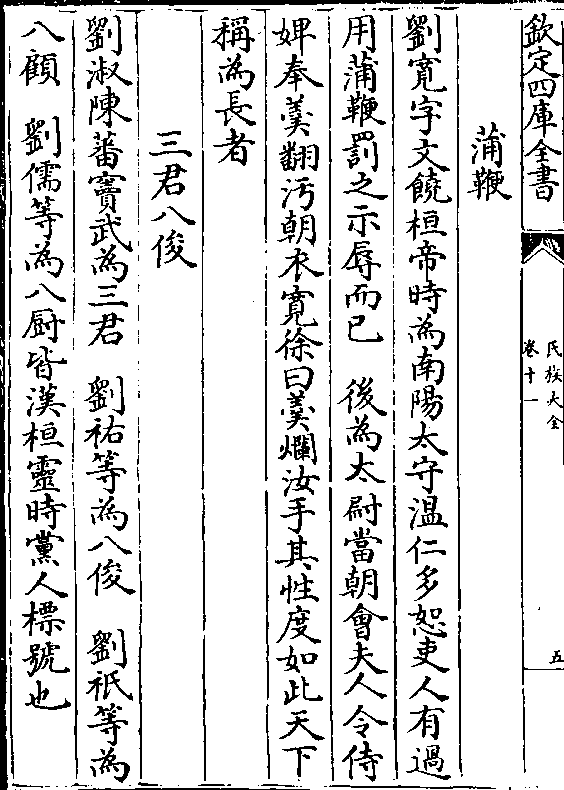 欽定四庫全書
氏族大全
卷十一
五
蒲鞭
劉寛字文饒桓帝時為南陽太守温仁多恕吏人有過
用蒲鞭罰之示辱而已　後為太尉當朝會夫人令侍
婢奉羮翻汚朝衣寛徐曰羮爛汝手其性度如此天下
稱為長者
三君八俊
劉淑陳蕃竇武為三君　劉祐等為八俊　劉祗等為
八顧　劉儒等為八厨皆漢桓靈時黨人標號也